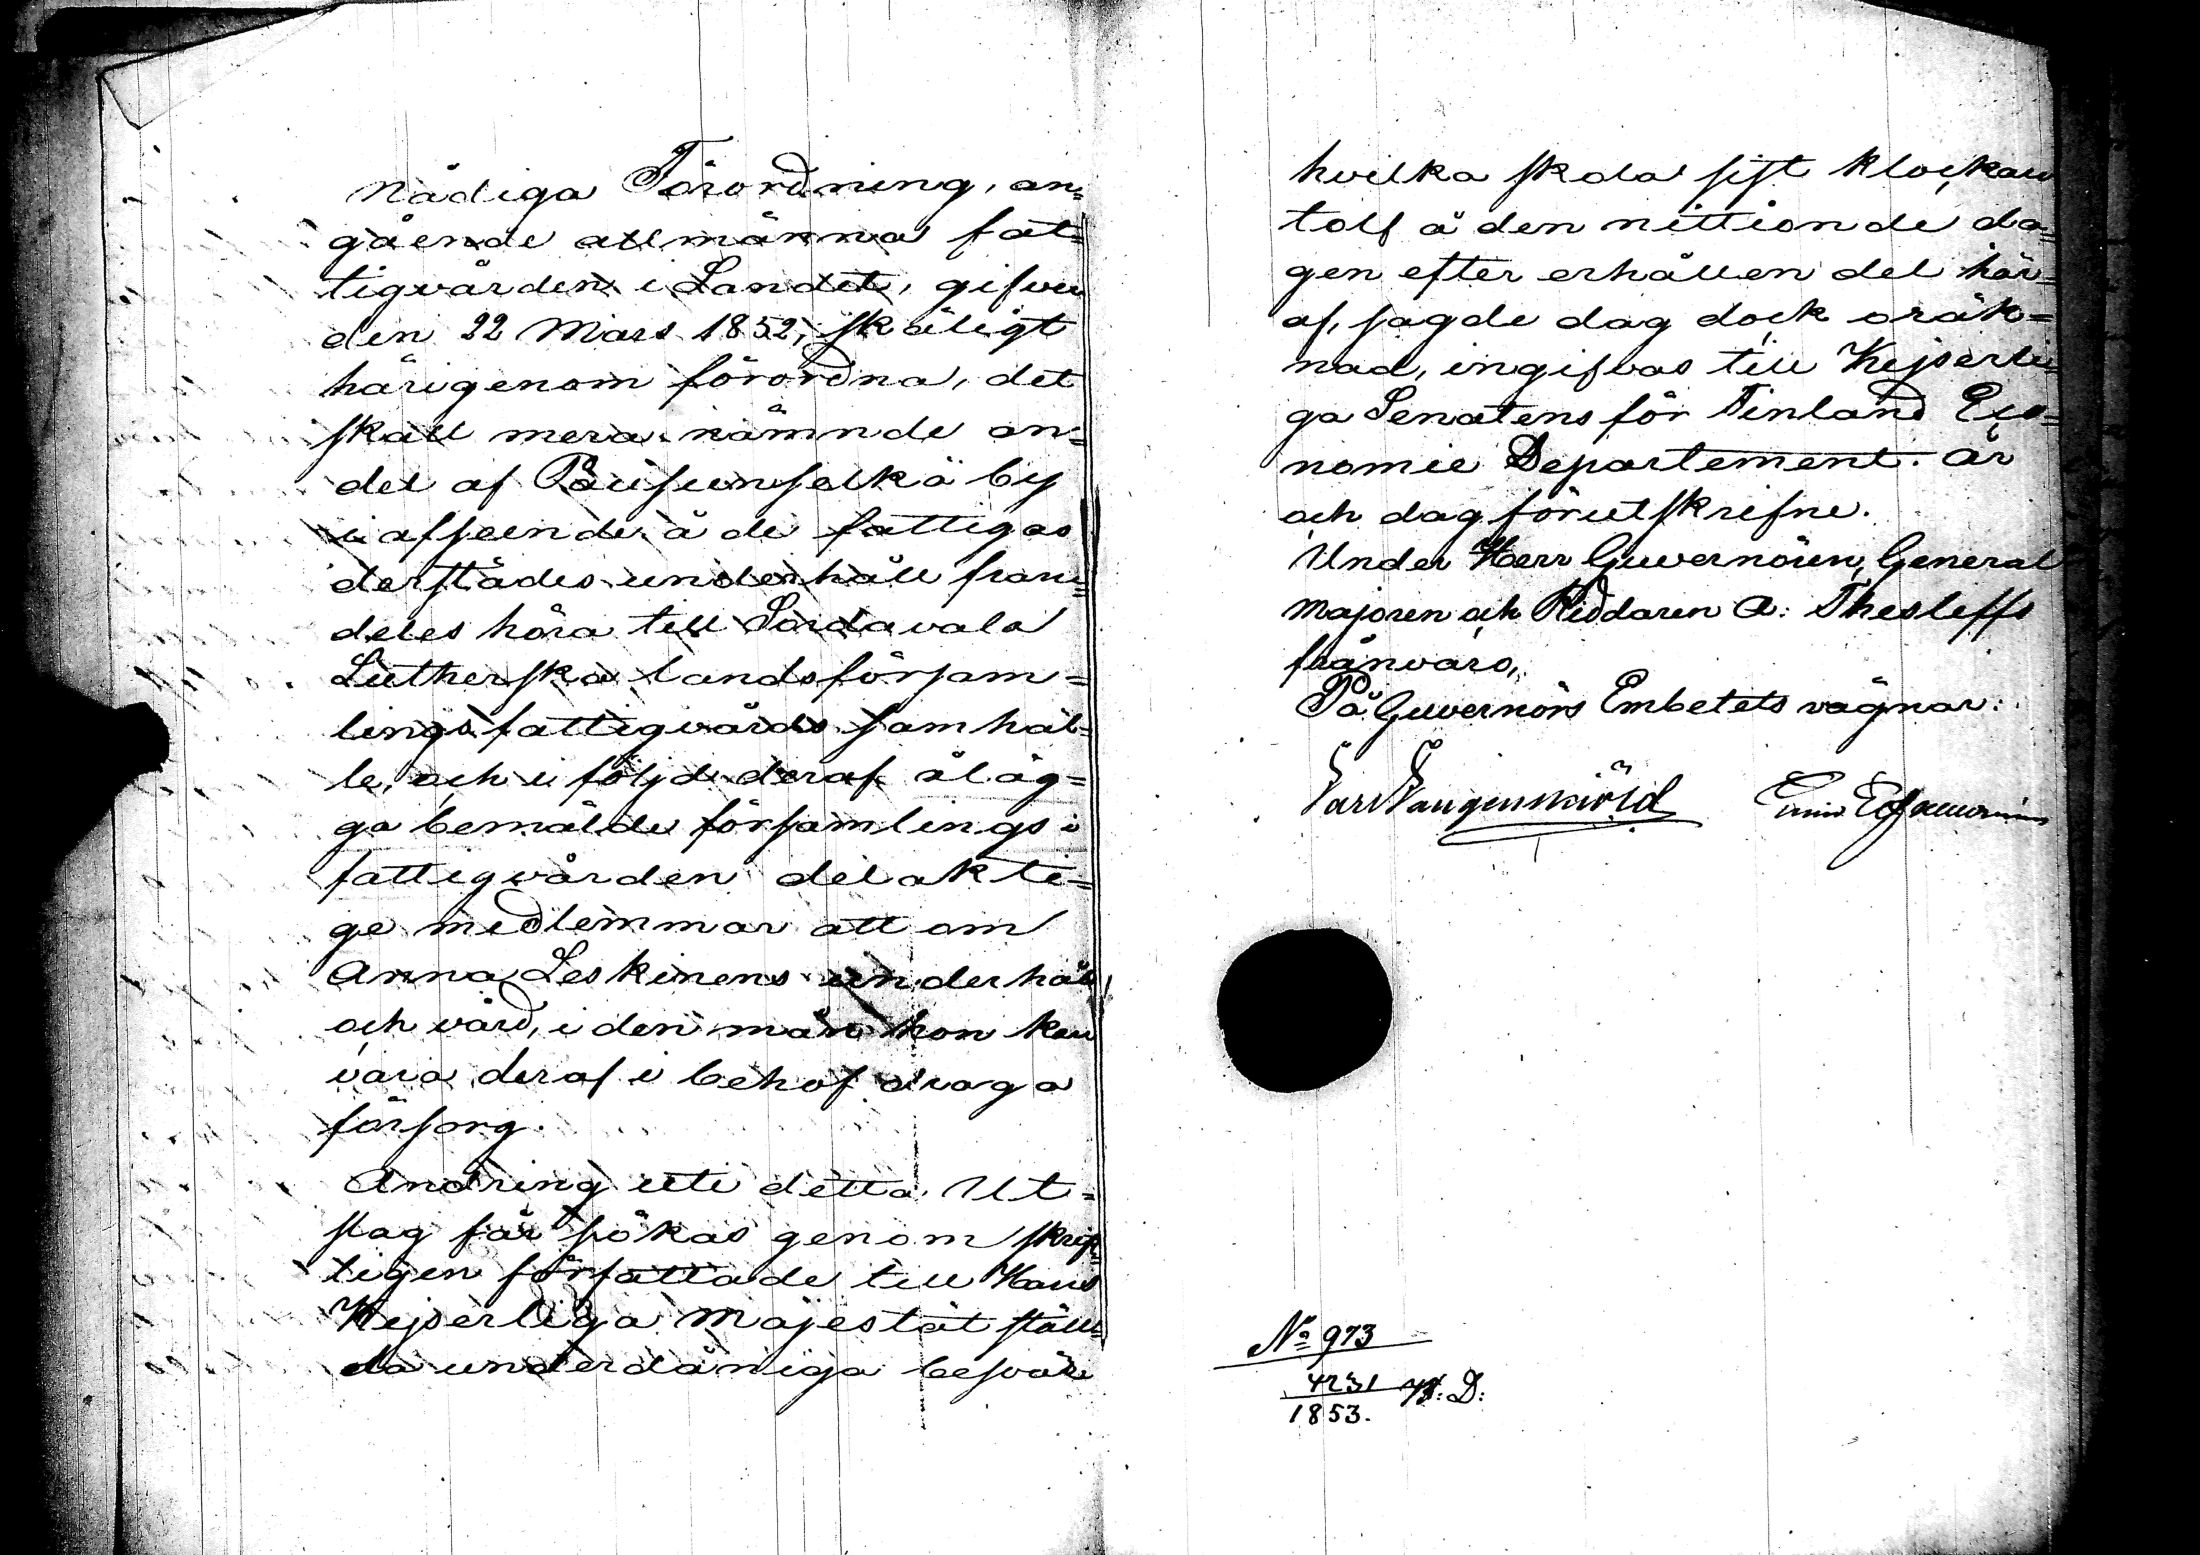 nådiga Förordning, an=
gående allmänna fat=
tigvården i Landet, gifven
den 22 Mars 1852, skäligt
härigenom förordna, det
skall mera nämnde an=
del af Puisunselkä by
i afseende å de fattigas
derstädes underhåll fram=
deles höra till Sordavala
Lutherska landsförsam=
lings fattigvårds samhäl=
le, och i följd deraf åläg=
ga bemälde församlings i
fattigvården delakti=
ge medlemmar att om
Anna Leskinens underhåll
och vård, i den mån hon kan
vara deraf i behof draga
försorg.
Ändring uti detta Ut=
slag får sökas genom skrift=
ligen författade till Hans
Kejserliga Majestät ställ=
da underdåniga besvär
hvilka skola sist klockan
tolf å den nittionde da=
gen efter erhållen del här=
af, sagde dag dock oräk=
nad, ingifvas till Kejserli=
ga Senatens för Finland Eco=
nomie Departement. År
och dag förutskrifne.
Under Herr Guvernören, General
Majoren och Riddaren A: Thesleffs
frånvaro,
På Guvernörs Embetets vägnar:
No 973
4231 K: D:
1853.